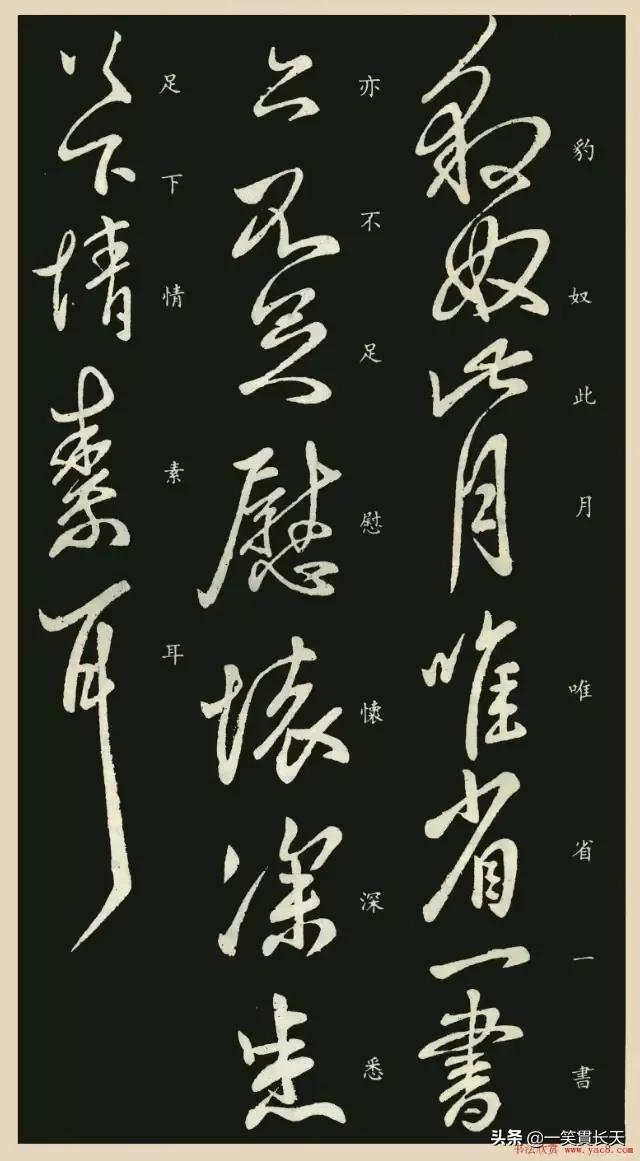 豹奴此月唯省一書
豹奴此月唯省一書
亦不足慰懷深悉
亦不足慰懷深悉
足下情素耳
足下情素耳
头条 @一笑贯长天
书法欣赏 www.yac8.com